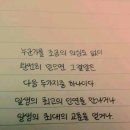 누군가를 조금의 의심도 없이
완벽히 믿으면 그 결말은
다음 두가지중 하나이다
일생의 최고의 인연을 만나거나
일생의 최대의 교훈을 얻거나